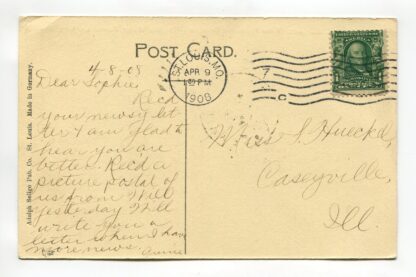 POST CARD.
ST. LOUIS, MO.
APR 9
PM
1908
7
C
4-8-08
Dear Sophie,
Rec'd
your newsy let
ter & am glad to
hear you are
better. Rec'd a
picture postal of
us from Will
yesterday Will
write you a
letter when I have
more news.
Miss S. Huecka,
Caseyville,
Ill.
Adolph Selige Pub. Co. St. Louis. Made in Germany.